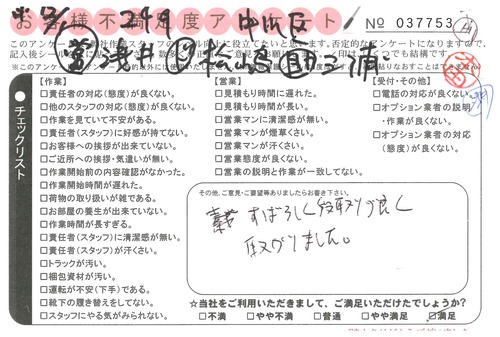 お客様不満足度アンケート
No 037753
中川区
浅井
松宮
三浦
チェックリスト
【作業】
□責任者の対応(態度)が良くない。
□他のスタッフの対応(態度)が良くない。
□作業を見ていて不安がある。
□責任者(スタッフ)に好感が持てない。
□お客様への挨拶が出来ていない。
□ご近所への挨拶・気遣いが無い。
□作業開始前の内容確認がなかった。
□作業開始時間が遅れた。
□荷物の取り扱いが雑である。
□お部屋の養生が出来ていない。
□作業時間が長すぎる。
□責任者(スタッフ)に清潔感が無い。
□責任者(スタッフ)が汗くさい。
□トラックが汚い。
□梱包資材が汚い。
□運転が不安(下手)である。
□靴下の履き替えをしてない。
□スタッフにやる気がみられない。
【営業】
□見積もり時間に遅れた。
□見積もり時間が長い。
□営業マンに清潔感が無い。
□営業マンが煙草くさい。
□営業マンが汗くさい。
□営業態度が良くない。
□営業の説明と作業が一致してない。
【受付・その他】
□電話の対応が良くない。
□オプション業者の説明・作業が良くない。
□オプション業者の対応(態度)が良くない。
その他、ご意見・ご要望等ありましたらお書き下さい。
すばらしく段取りが良く
助かりました。
☆当社をご利用いただきまして、ご満足いただけたでしょうか?
□不満 □やや不満 □普通 □やや満足 □満足